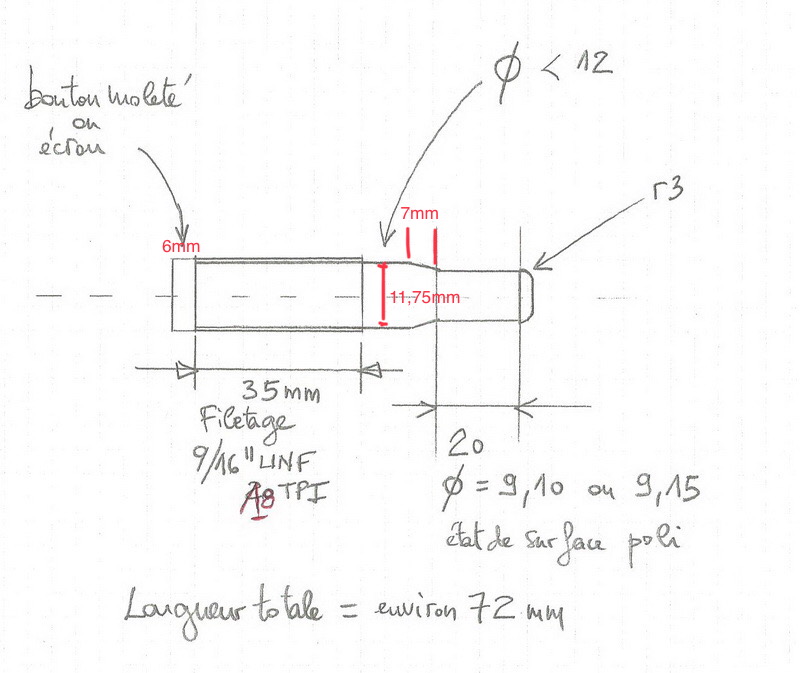 ϕ < 12
bouton moleté
ou
écrou
r3
7mm
6mm
11,75mm
35mm
Filetage
9/16" UNF
18 TPI
20
ϕ = 9,10 ou 9,15
état de surface poli
Longueur totale = environ 72 mm